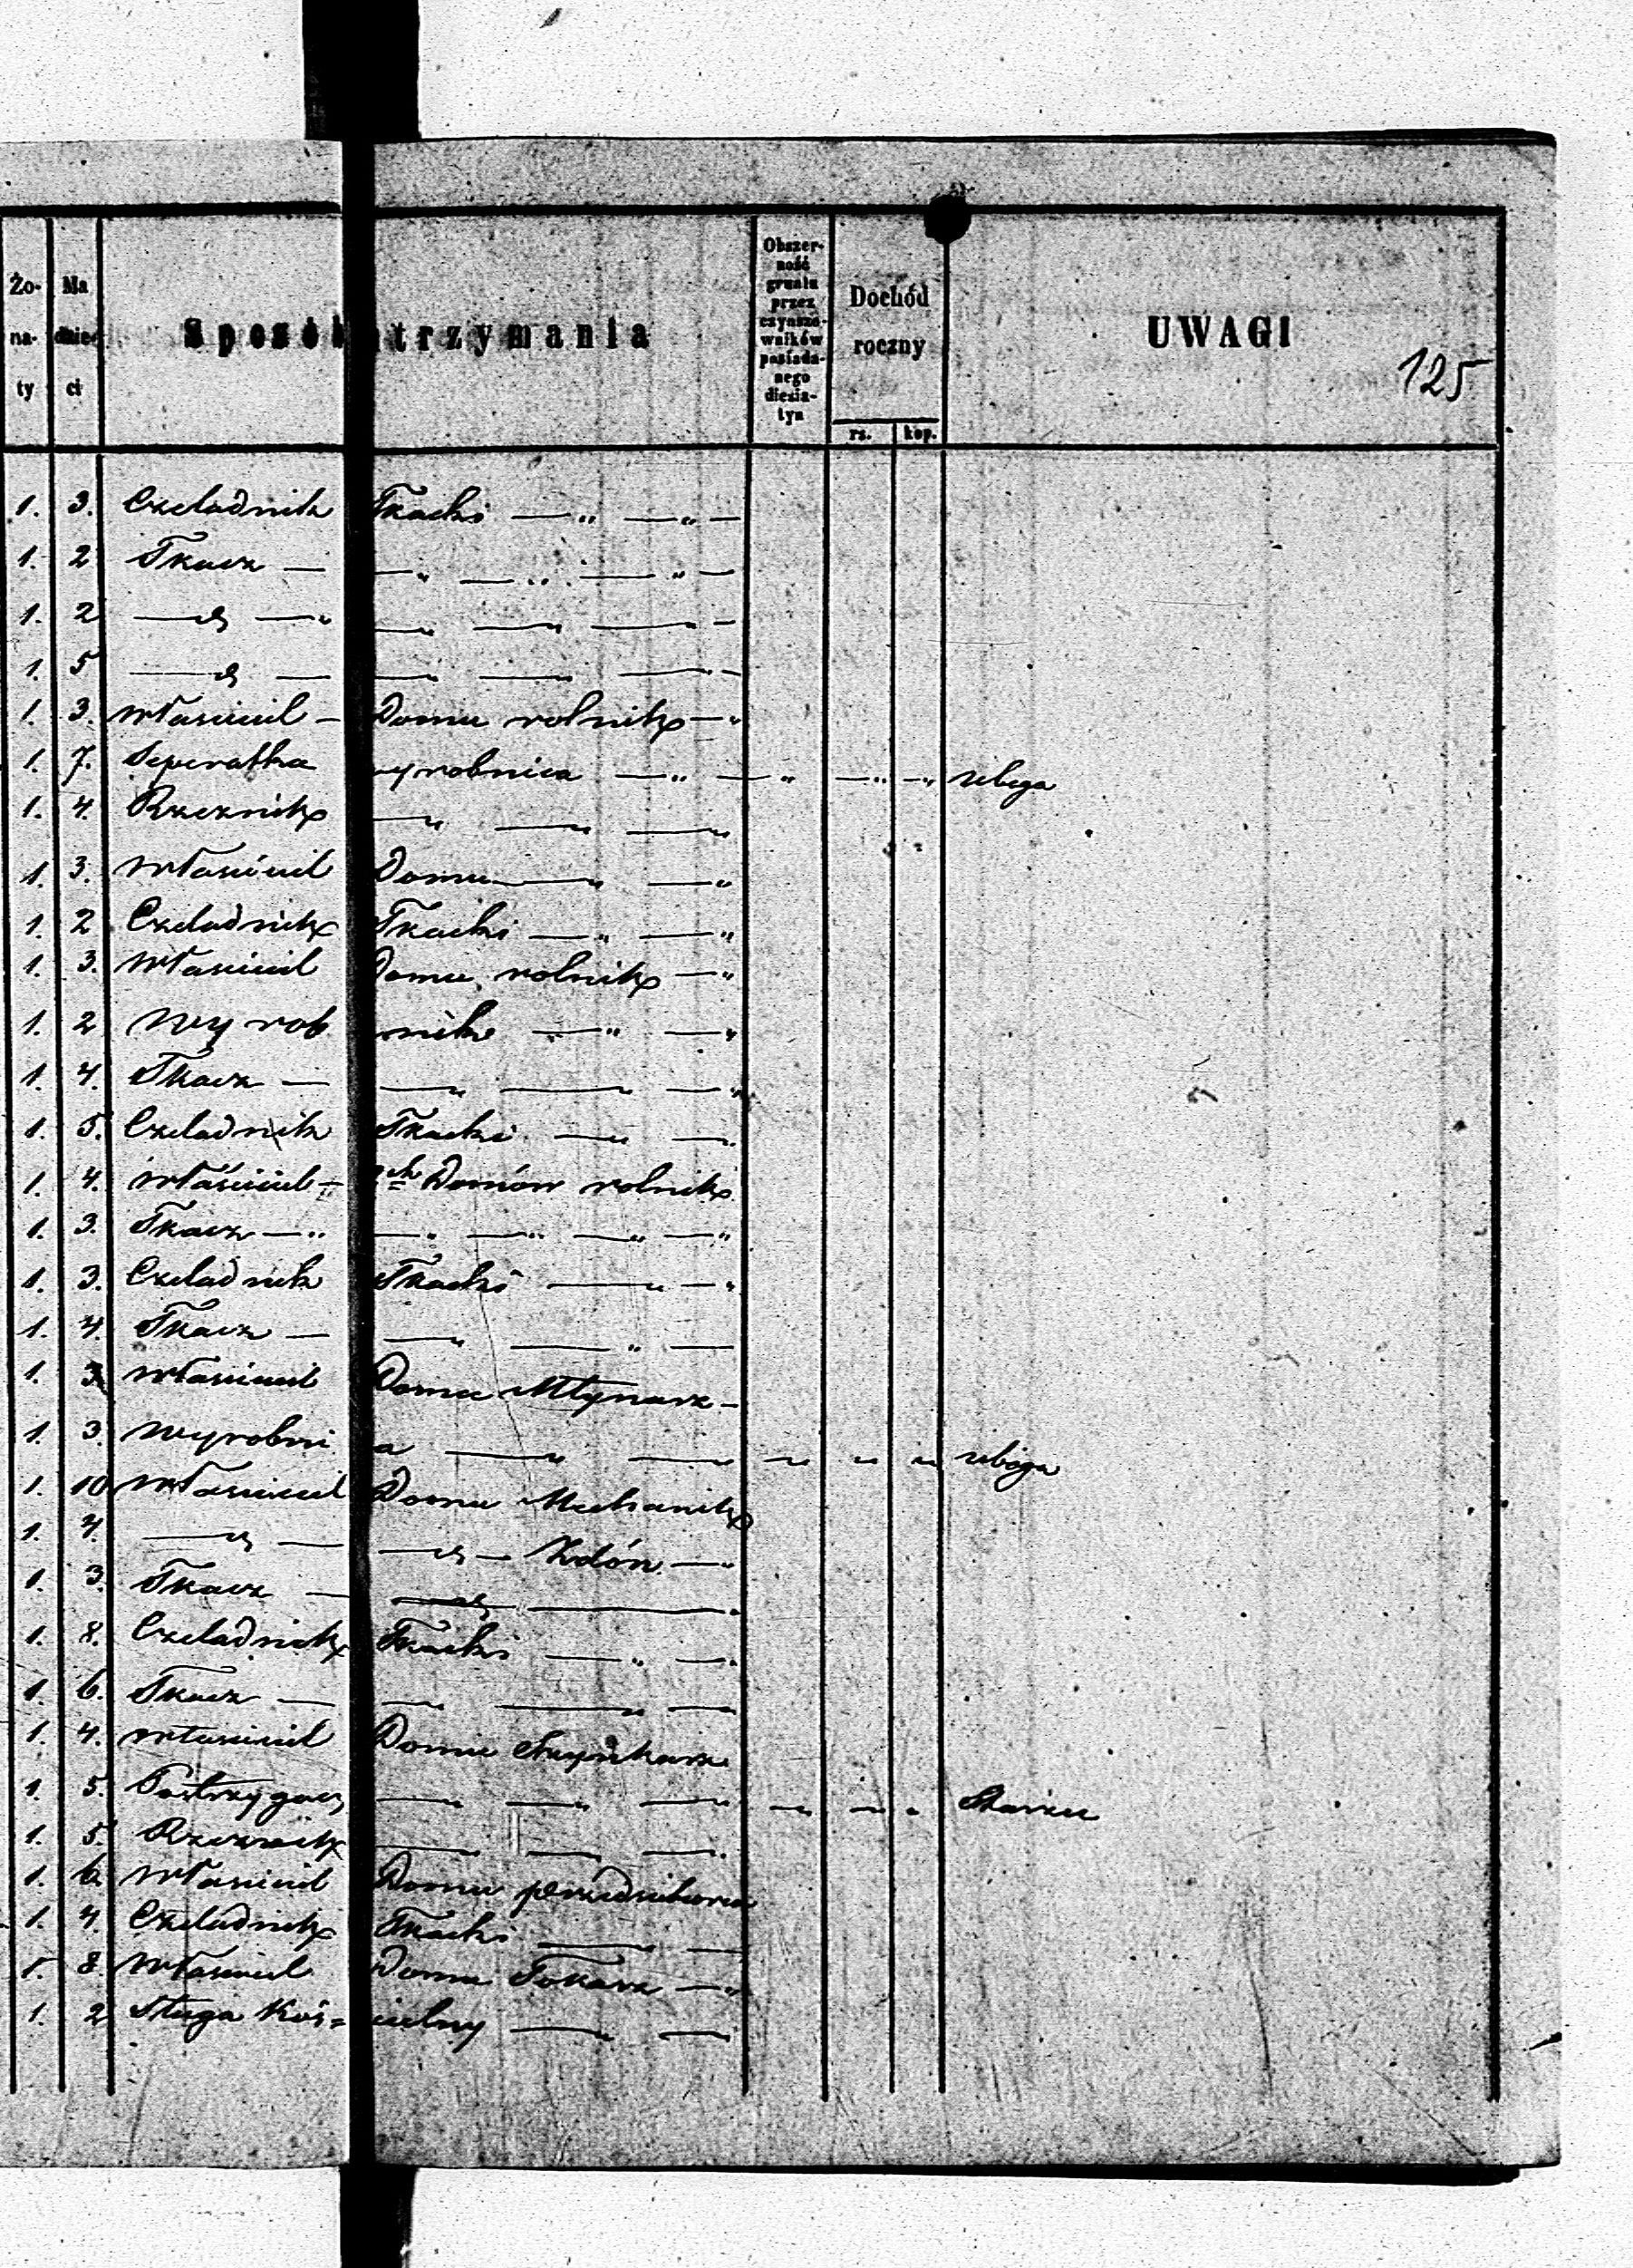 Żo-na-ty
Ma dzie-ci
Sposób utrzymania
Obszer-ność gruntu przez czynszo-wników posiada-nego diesia-tyn
Dochód roczny
rs. kop.
UWAGI
125
1. 3. Czeladnik Tkacki — „ — „ —
1. 2 Tkacz — — „ — „ — „ —
1. 2 — „ — „ — „ — „ — „ —
1. 5 — „ — — „ — „ — „ —
1. 3. Właściciel — Domu rolnik — „
1. 7. Seperatka wyrobnica — „ — „ — „ — „ uboga
1. 4. Rzeznik — „ — „ — „
1. 3. Właściciel Domu — „ — „
1. 2 Czeladnik Tkacki — „ — „
1. 3. Właściciel Domu rolnik — „
1. 2 Wyrobnik — „ — „
1. 4. Tkacz — — „ — „ — „
1. 5. Czeladnik Tkacki — „ — „
1. 4. Właściciel — 2ch Domów rolnik
1. 3. Tkacz — „ — „ — „ — „ — „
1. 3. Czeladnik Tkacki — „ — „
1. 4. Tkacz — — „ — „ —
1. 3 Właściciel Domu Młynarz —
1. 3. Wyrobni a — „ — „ „ „ „ uboga
1. 10 Właściciel Domu Mechanik
1. 4. — „ — — „ — Zdón — „
1. 3. Tkacz — — „ — „
1. 8. Czeladnik Tkacki — „ — „
1. 6. Tkacz — — „ — „ —
1. 4. Właściciel Domu Szynkarz
1. 5. Postrzygacz — „ — „ — „ „ „ „ Starzec
1. 5. Rzeznik — „ — „ — „
1. 6. Właściciel Domu przedsiebiorca
1. 4 Czeladnik Tkacki — —
1. 8. Właściciel Domu Tokarz — „
1. 2 Sługa Koś= cielny — „ —